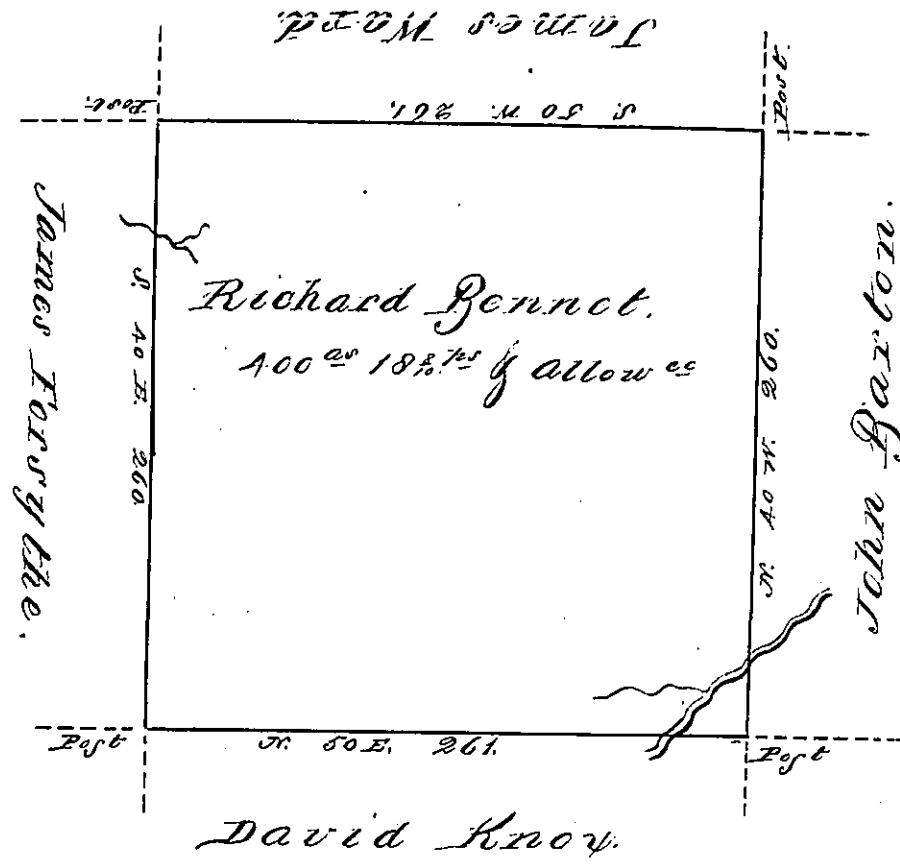 James Ward.
Post.
S. 50 W. 261.
Post.
James Forsythe.
S. 40 E. 260
Richard Bennet.
400 as 18 8/10 ps & allow ce
N. 40 W. 260.
John Barton.
Post
N. 50 E. 261.
Post
David Knox.